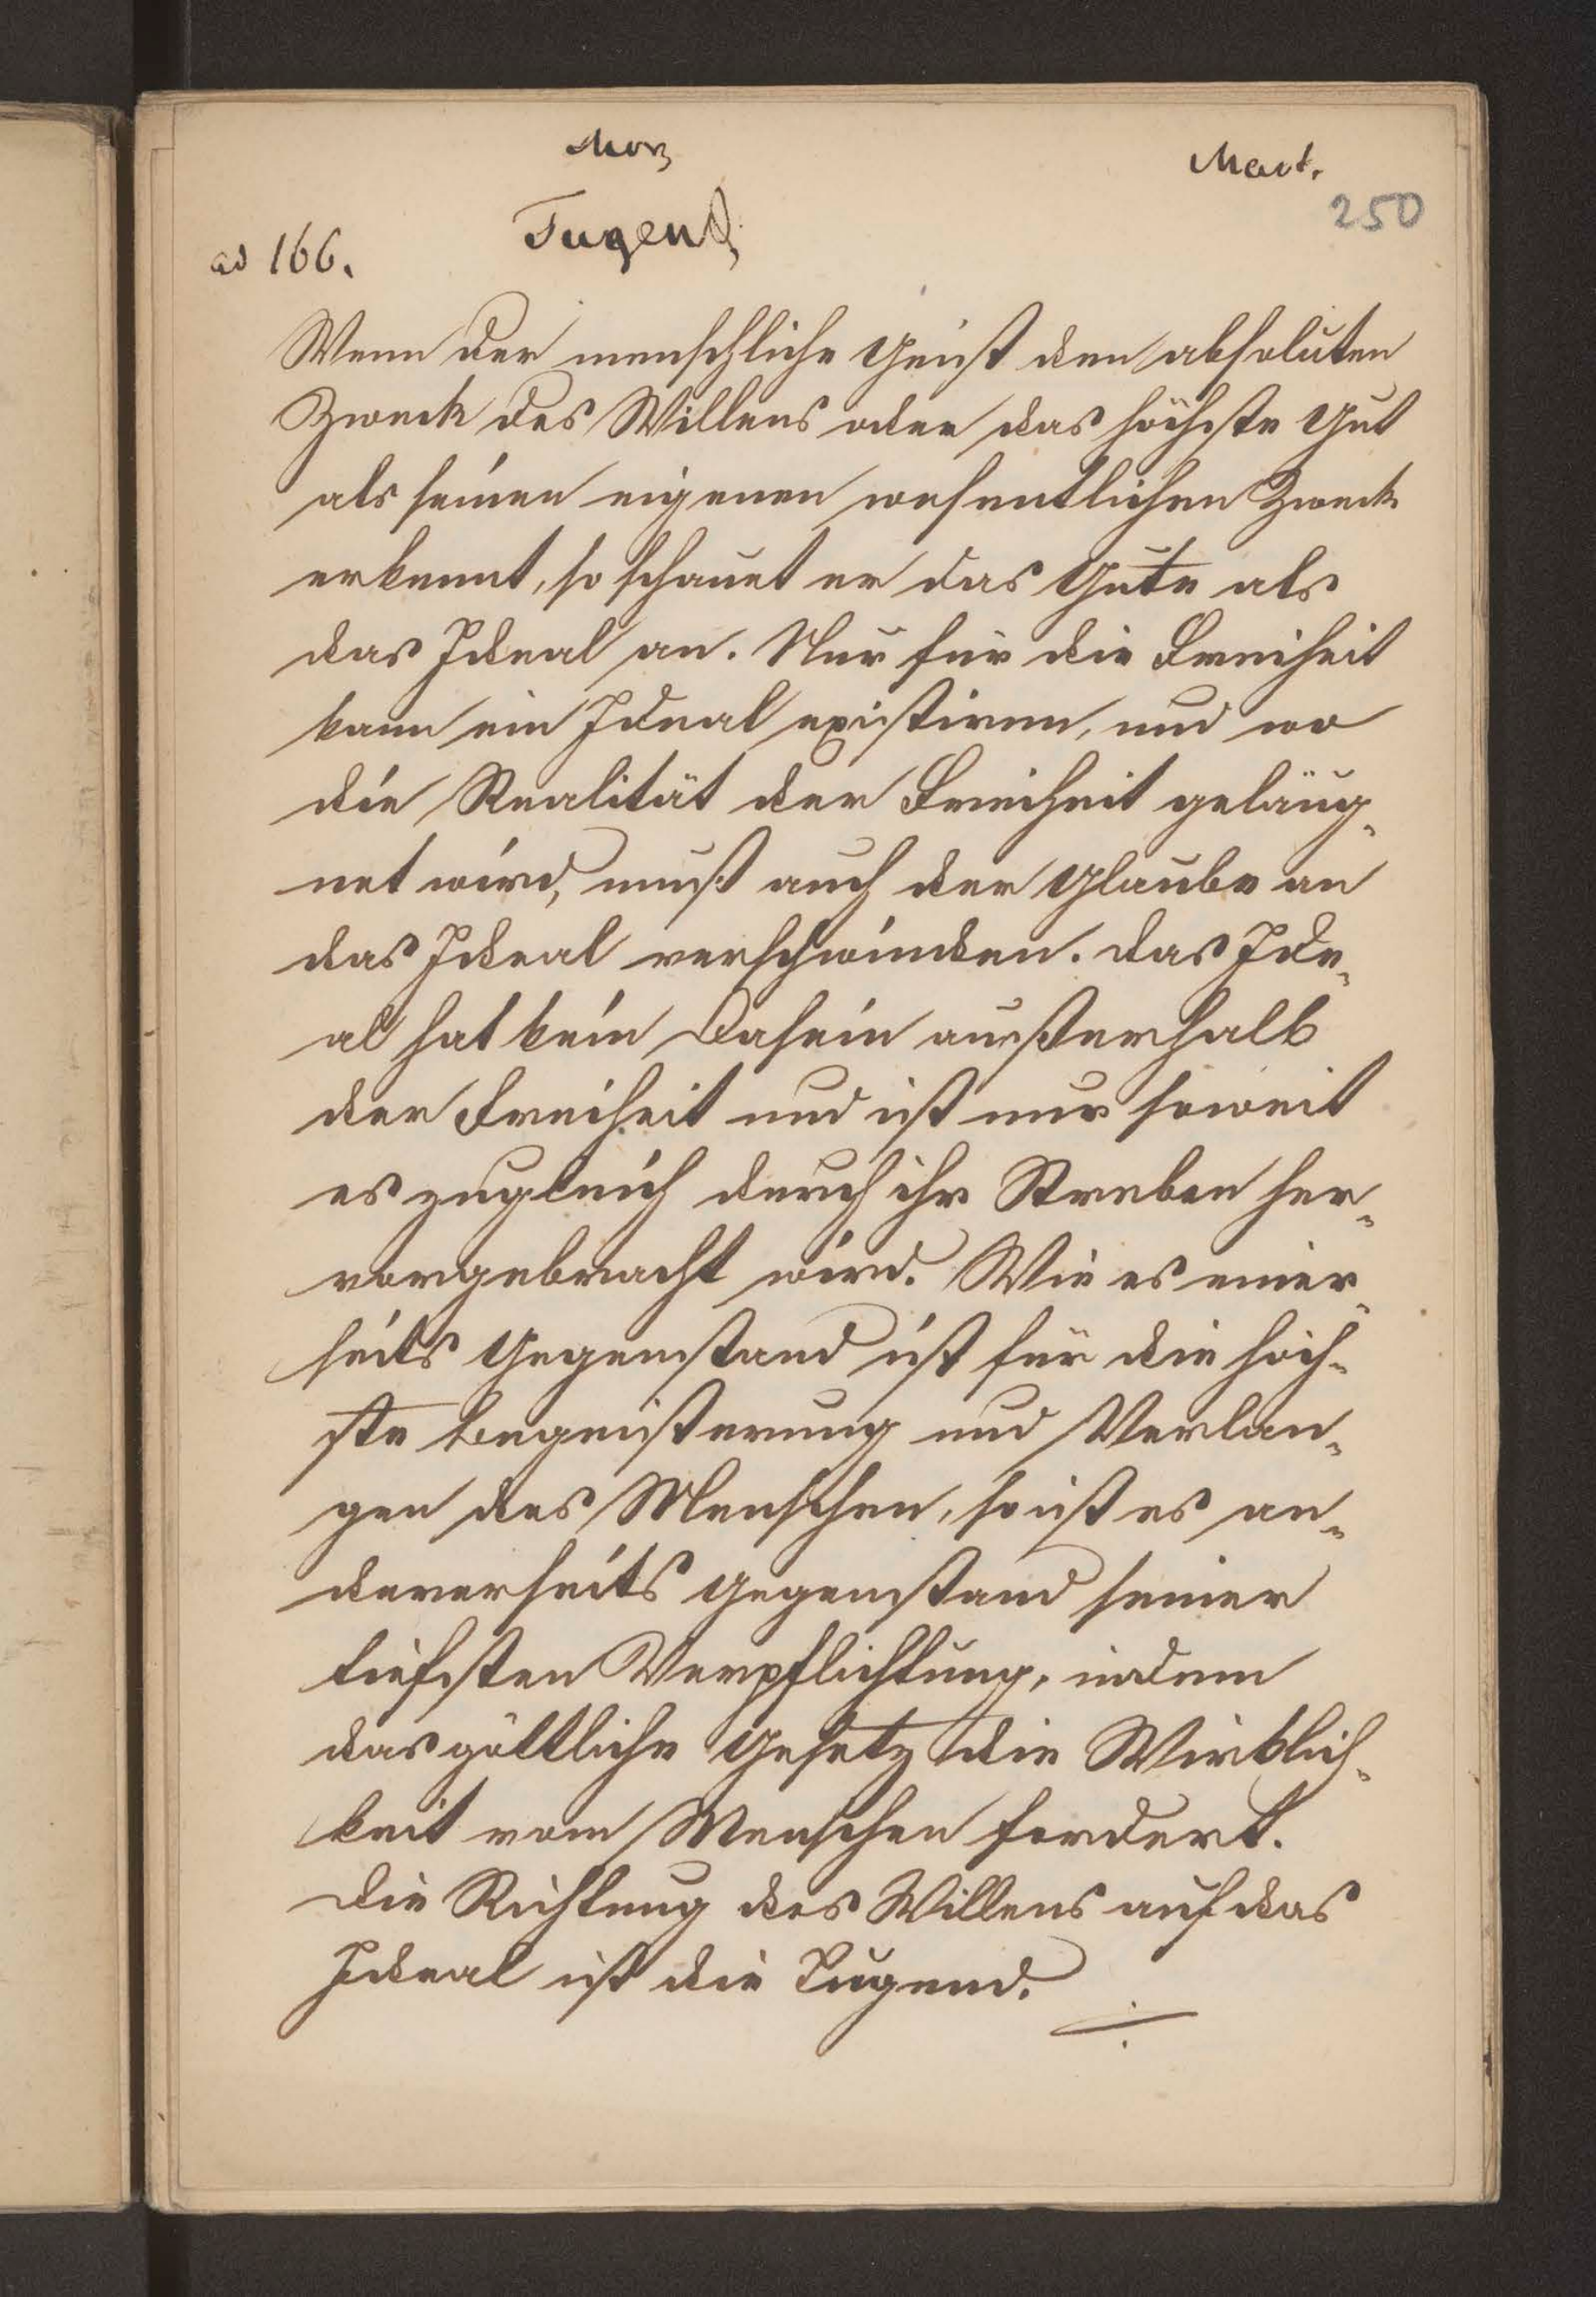 Mor
Mart.
250
Tugend
ad 166.
Wenn der menschliche Geist den absoluten
Zweck des Willens oder das höchste Gut
als seinen eigenen wesentlichen Zweck
erkennt, so schauet er das Gute als
das Ideal an. Nur für die Freiheit
kann ein Ideal existiren, und wo
die Realität der Freiheit geläug-
net wird, muß auch der Glaube an
das Ideal verschwinden. Das Ide-
al hat kein Dasein außerhalb
der Freiheit und ist nur soweit
es zugleich durch ihr Streben her-
vorgebracht wird. Wie es einer-
seits Gegenstand ist für die höch-
ste Begeisterung und Verlan-
gen des Menschen, so ist es an-
dererseits Gegenstand seiner
tiefsten Verpflichtung, indem
das göttliche Gesetz die Wirklich-
keit vom Menschen fordert.
Die Richtung des Willens auf das
Ideal ist die Tugend.